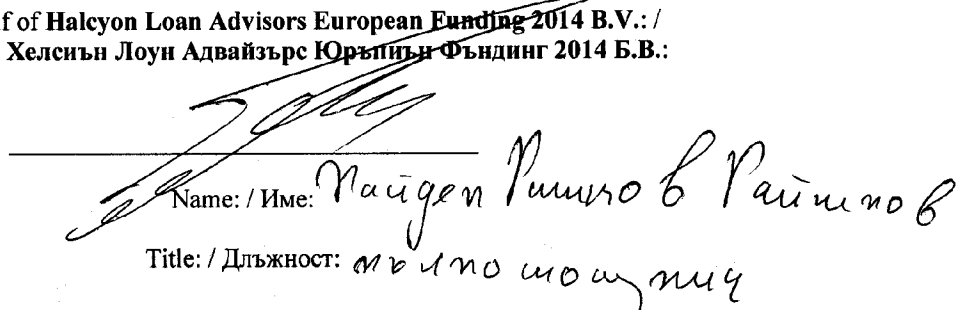 f of Halcyon Loan Advisors European Funding 2014 B.V.: /
Хелсиън Лоун Адвайзърс Юръпиън Фъндинг 2014 Б.В.:
Name: / Име: Найден
Title: / Длъжност: пълномощник